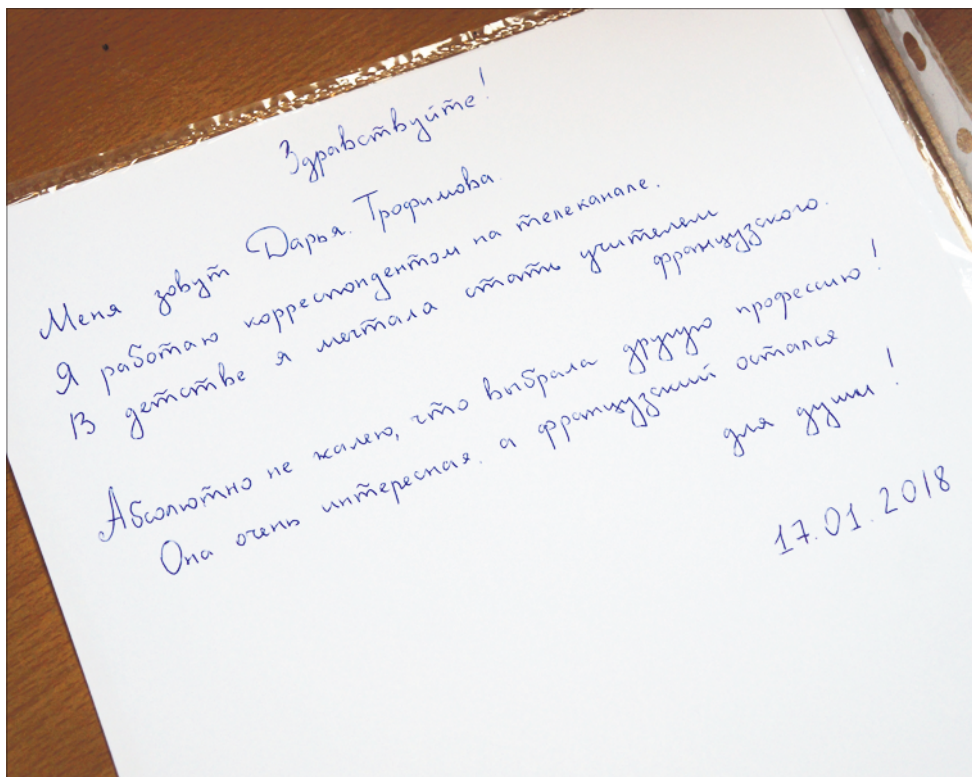 Здравствуйте!
Меня зовут Дарья Трофимова.
Я работаю корреспондентом на телеканале.
В детстве я мечтала стать учителем
французского.
Абсолютно не жалею, что выбрала другую профессию!
Она очень интересная, а французский остался
для души!
17.01.2018